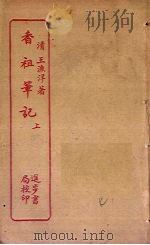 清 王漁洋著
香祖筆記 上
進步書局校印